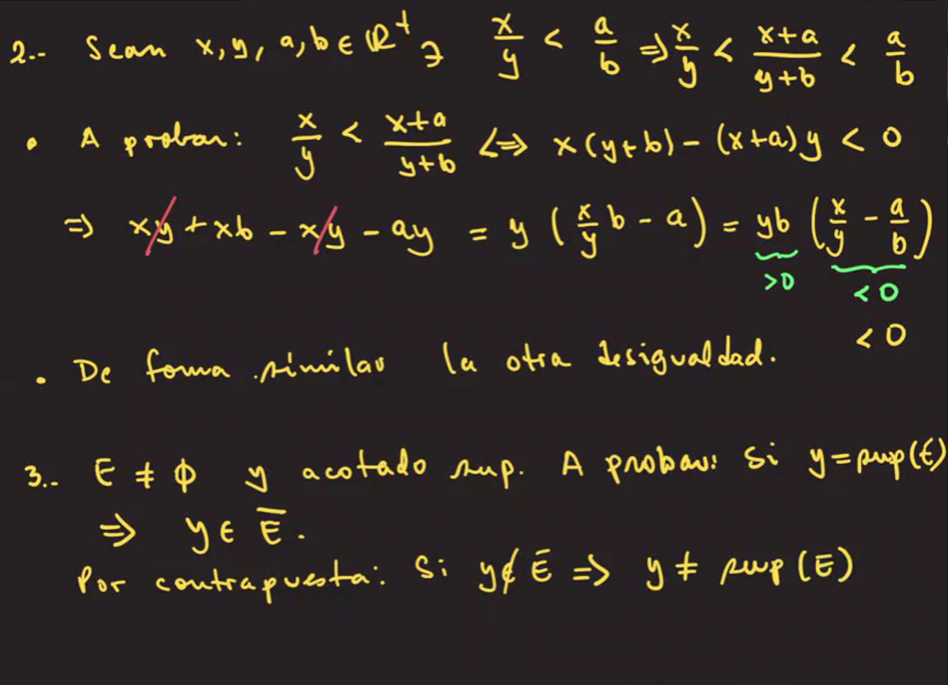 2.- Sean x, y, a, b ∈ ℝ⁺ ∋ x/y < a/b ⇒ x/y < (x+a)/(y+b) < a/b
• A probar: x/y < (x+a)/(y+b) ⇔ x(y+b) - (x+a)y < 0
⇒ xy + xb - xy - ay = y (x/y b - a) = yb (x/y - a/b)
>0 <0
<0
• De forma similar la otra desigualdad.
3.- E ≠ ϕ y acotado sup. A probar: Si y = sup(E)
⇒ y ∈ E̅.
Por contrapuesta: Si y ∉ E̅ ⇒ y ≠ sup(E)